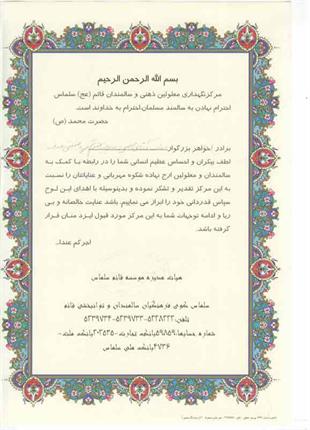 بسم الله الرحمن الرحیم
مرکز نگهداری معلولین ذهنی و سالمندان قائم (عج) سلماس
احترام نهادن به سالمند مسلمان احترام به خداوند است.
حضرت محمد (ص)
برادر/خواهر بزرگوار
لطف بیکران و احساس عظیم انسانی شما را در رابطه با کمک به
سالمندان و معلولین ارج نهاده شکوه مهربانی و عنایاتتان را نسبت
به این مرکز تقدیر و تشکر نموده و بدینوسیله با اهدای این لوح
سپاس قدردانی خود را ابراز می نماییم. باشد عنایت خالصانه و بی
ریا و ادامه توجهات شما به این مرکز مورد قبول ایزد منان قرار
گرفته باشد.
اجرکم عندا..
هیات مدیره موسسه قائم سلماس
سلماس کوی فرهنگیان سالمندان و توانبخشی قائم
تلفن: ۵۲۲۸۲۲۲-۵۲۳۹۷۳۳-۵۲۳۹۷۳۴
شماره حسابها: ۵۹۸۵۹ بانک تجارت-۲۰۲۵۲۵ بانک ملت-
۴۷۳۶ بانک ملی سلماس